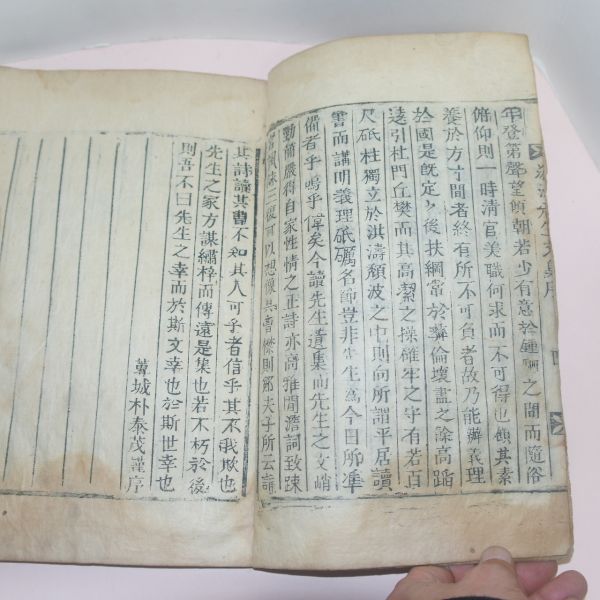 年登第聲望傾朝若少有意於鍾之間而隨俗
俯仰則一時清官美職何求而不可得也顧其素
養於方寸間者終有所不可負者故乃能辦義理
於國是旣定之後扶綱常於彛倫壞盡之餘高蹈
遠引杜門丘樊而其高潔之操確牢之守有若百
尺砥柱獨立於洪濤頹波之中則向所謂平居讀
書而講明義理砥礪名節豈非先生爲今日所準
備者乎嗚乎偉矣今讀先生遺集而先生之文峭
勁簡嚴得自家性情之正詩亦高雅閒澹詞致疎
風味三復可以想像其曹襟則鄒夫子所云誦
其詩讀其書不知其人可乎者信乎其不我欺也
先生之家方謀繡梓而傳遠是集也若不朽於後
則吾不曰先生之幸而於斯文幸也於斯世幸也
萬城朴泰茂謹序
先生文集序
四